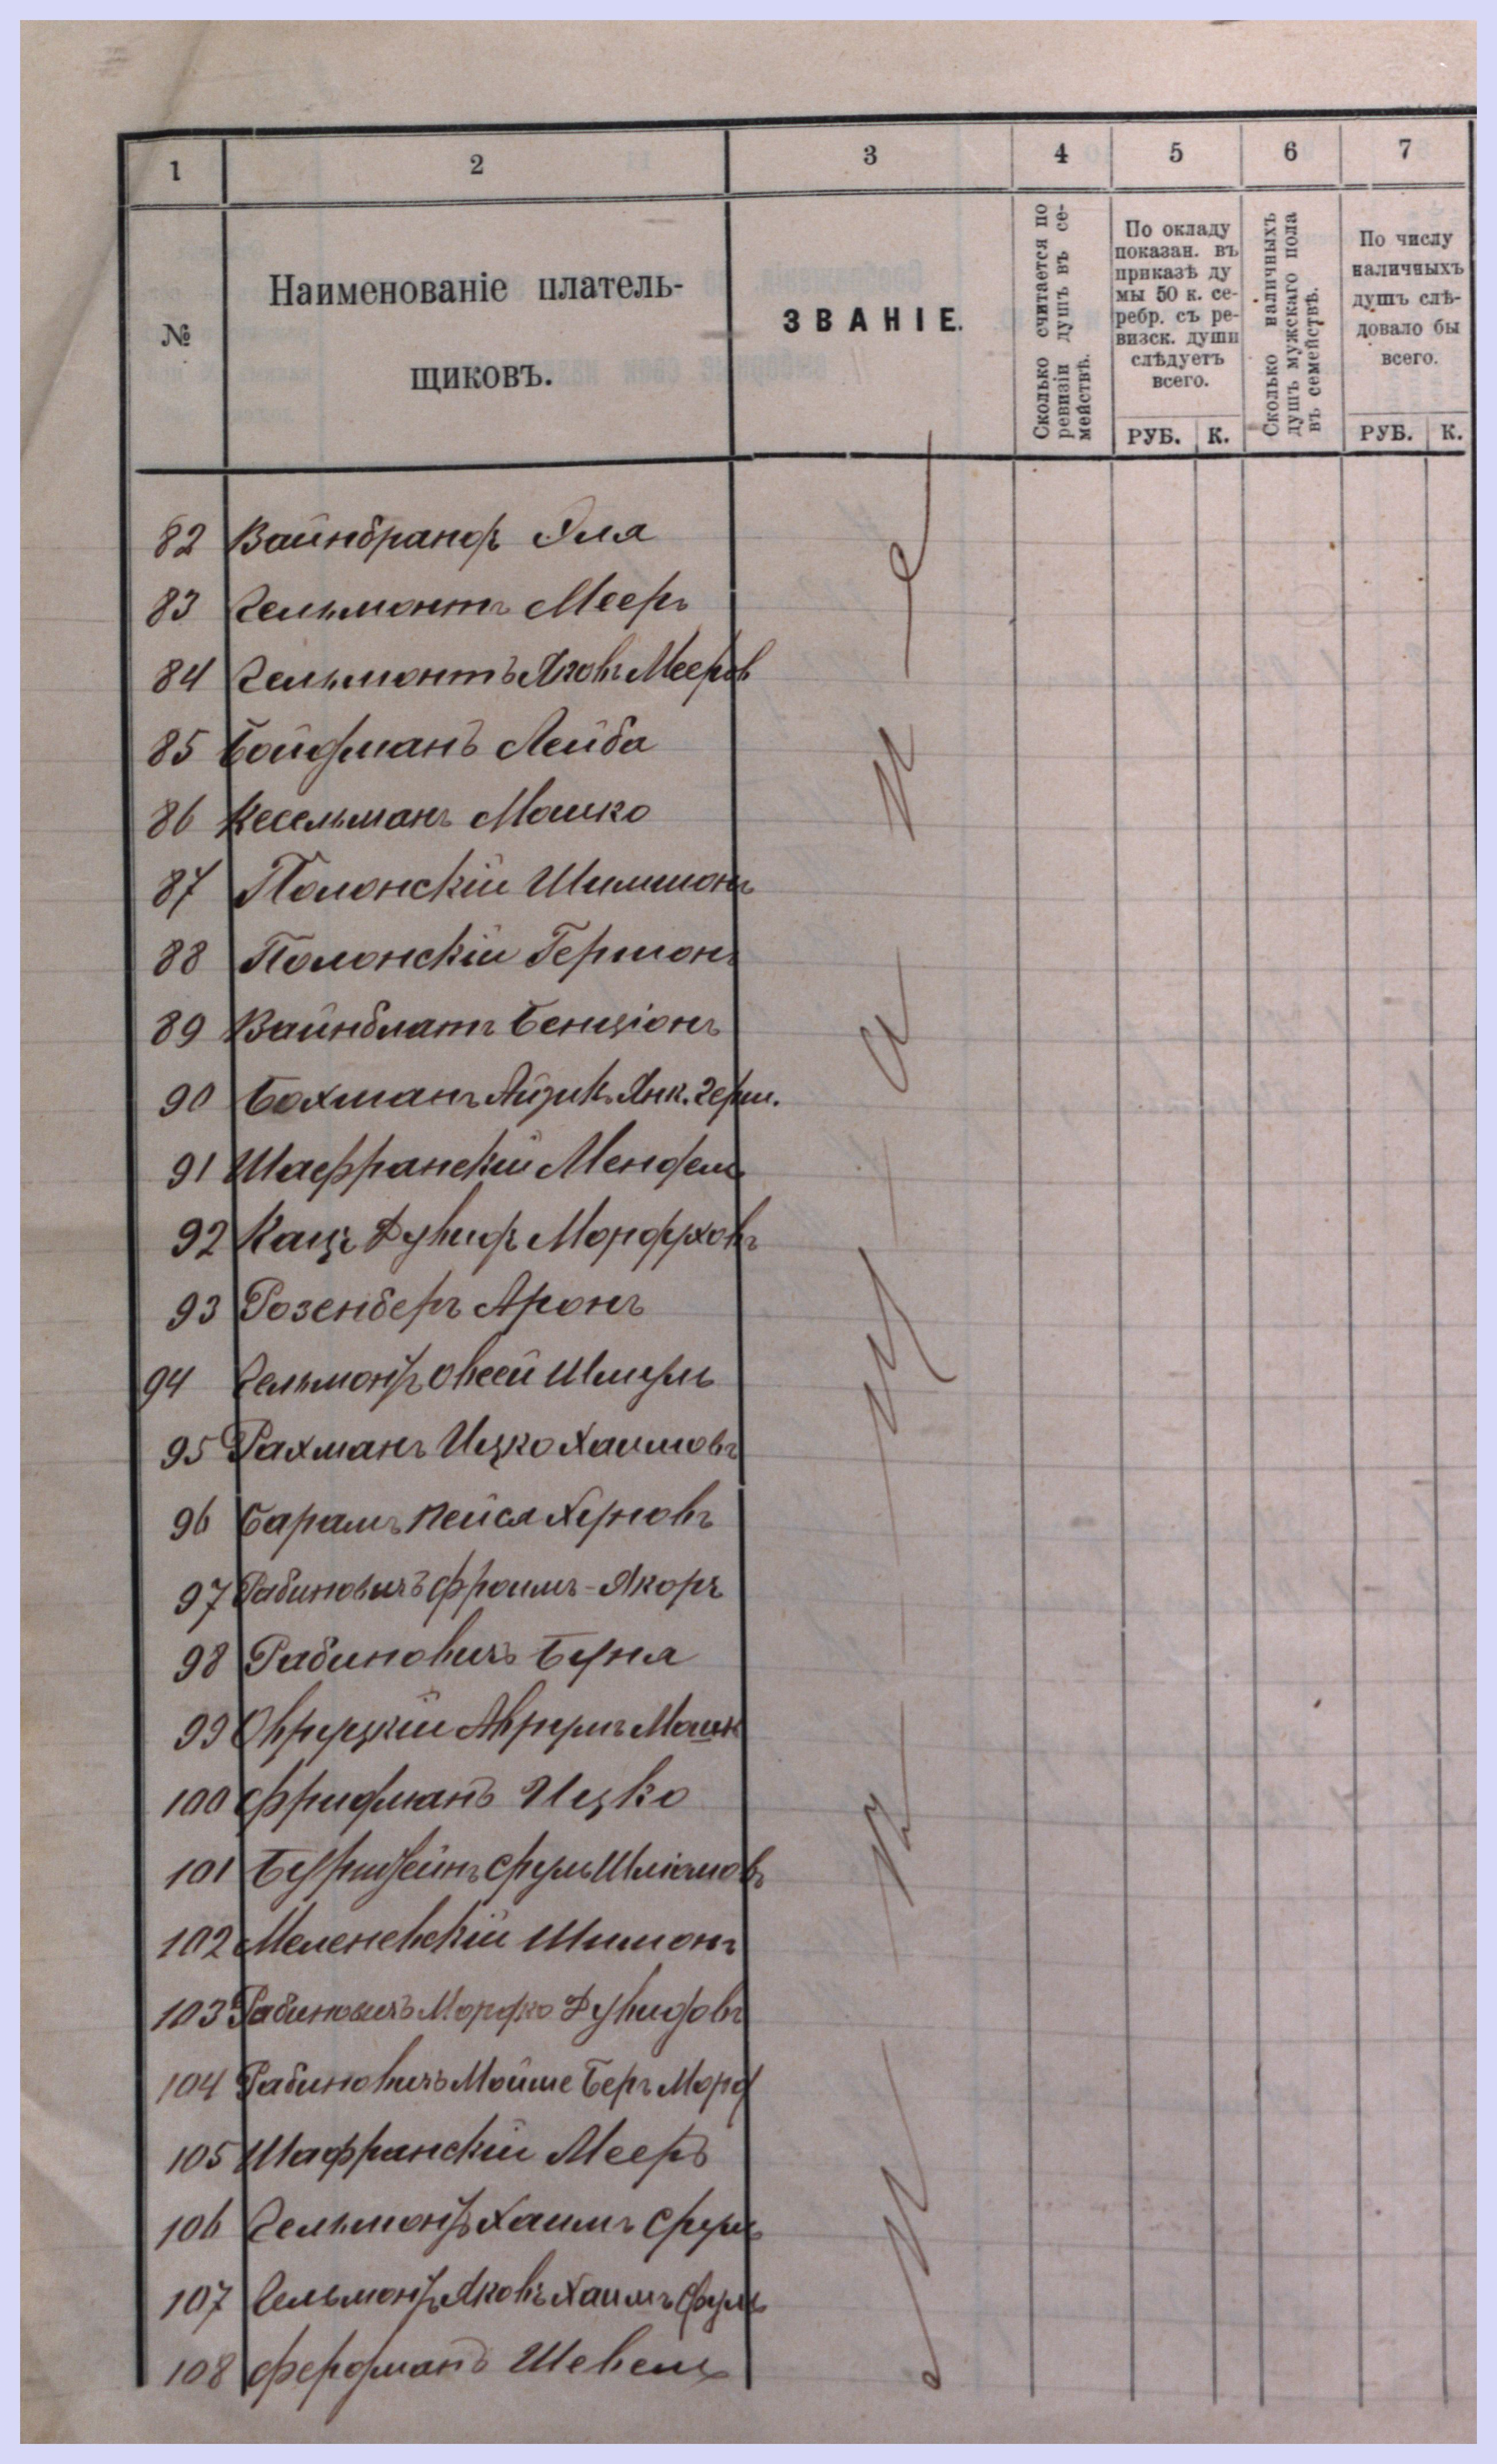 1 2 3 4 5 6 7
№
Наименованіе платель-
щиковъ.
ЗВАНІЕ.
Сколько считается по
ревизіи душъ въ се-
мействѣ.
По окладу
показан. въ
приказѣ ду
мы 50 к. се-
ребр. съ ре-
визск. души
слѣдуетъ
всего.
РУБ. К.
Сколько наличныхъ
душъ мужскаго пола
въ семействѣ.
По числу
наличныхъ
душъ слѣ-
довало бы
всего.
РУБ. К.
82 Вайнбрандъ Эля
83 Гельмонтъ Мееръ
84 Гельмонтъ Яковъ Мееров
85 Бойдманъ Лейба
86 Кесельманъ Мошко
87 Полонскій Шимшонъ
88 Полонскій Гершонъ
89 Вайнблатъ Бенціонъ
90 Бохманъ Айзикъ Янк. Герш.
91 Шафранскій Мендель
92 Кацъ Дувидъ Мордуховъ
93 Розенберъ Аронъ
94 Гельмонтъ Овсей Шмуль
95 Рахманъ Ицко Хаимовъ
96 Барамъ Пейся
97 Рабиновичъ Фроимъ-
98 Рабиновичъ Буня
99 Овруцкій Аврумъ Мошк
100 Фридманъ Ицко
101 Срулъ
102 Меленевскій Шимонъ
103 Рабиновичъ Мордко Дувидовъ
104 Рабиновичъ Мойше Беръ Морд
105 Шафранскій Мееръ
106 Гельмонтъ Хаимъ Сруль
107 Гельмонтъ Яковъ Хаимъ Сруль
108 Фердманъ Шевель